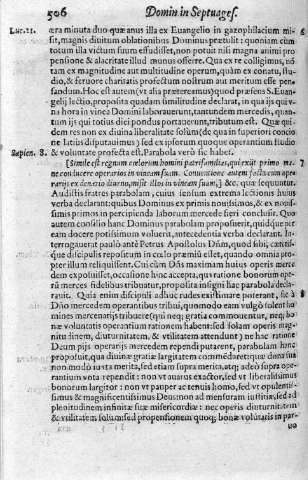 506 Domin in Septuages.
Luc. 21. æra minuta duo quæanus illa ex Euangelio in gazophilacium mi- 6
sit, magnis diuitum oblationibus Dominus prætulit: quoniam cum
totum illa victum suum effudisset, non potuit nisi magna animi pro
pensione & alacritate illud munus offerre. Qua ex re colligimus, nō
tam ex magnitudine aut multitudine operum, quàm ex conatu, stu-
dio, & feruore charitatis profectum nostrum aut meritum esse pen-
sandum. Hoc est autem (vt alia prætereamus) quod præsens S. Euan-
gelij lectio, proposita quadam similitudine declarat, in qua ijs qui v-
na hora in vinea Domini laborauerunt, tantundem mercedis, quan-
tum ijs qui totius diei pondus portauerunt, tribuitur est. Quæ qui-
dem res non ex diuina liberalitate solùm (de qua in superiori concio
ne latius disputauimus) sed ex ipsorum quoque operantium studio
Sapien. 8. & voluntate profecta est. Parabola verò sic habet.
[Simile est regnum cœlorum homini patrifamilias, qui exijt primo me- 7
ne conducere operarios in vineam suam. Conuentione autem facta cum ope-
rarijs ex denario diurno, misit illos in vineam suam,] &c. quæ sequuntur.
Audistis fratres parabolam, cuius sensum extrema lectionis huius
verba declarant: quibus Dominus ex primis nouissimos, & ex noui-
ssimis primos in percipienda laborum mercede fieri conclusit. Quo
autem consilio hanc Dominus parabolam proposuerit, quidque per
eam docere potissimum voluerit, antecedentia verba declarant. In-
terrogauerat paulò antè Petrus Apostolus Dñm, quod sibi, cæteris-
que discipulis repositum in cœlo præmiū esset, quando omnia pro-
pter illum reliquissent. Cui cùm Dñs maximam huius operis merce
dem exposuisset, occasione hinc accepta, qua ratione bonorum ope-
rū merces fidelibus tribuatur, proposita insigni hac parabola decla-
rauit. Quia enim discipuli adhuc rudes existimare poterant, sic à 8
Dño mercedem operantibus tribui, quomodo eam vulgò solent ho
mines mercenarijs tribuere (qui neq; gratia commouentur, neq; bo-
næ voluntatis operantium rationem habent: sed solam operis mag-
nitudinem, diuturnitatem, & vtilitatem attendunt) ne hac ratione
Deum pijs operarijs mercedem rependi putarent, parabolam hanc
proposuit, qua diuinæ gratiæ largitatem commēdaret: quæ dona sua
non modo iuxta merita, sed etiam supra merita, atq; adeò supra ope-
rantium vota rependit: non vt auarus exactor, sed vt liberalissimus
bonorum largitor: non vt pauper ac tenuis homo, sed vt opulentis-
simus & magnificentissimus Deus: non ad mensuram iustitiæ, sed ad
plenitudinem infinitæ suæ misericordiæ: nec operis diuturnitatem
& vtilitatem solùm sed propensionem quoq; bonæ voluntatis in par-